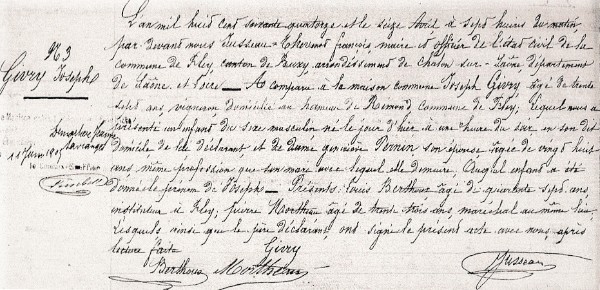 N° 3
Givry Joseph
L'an mil huit cent soixante quatorze et le seize Avril à sept heures du matin
par devant nous Jusseau Thermet françois, maire et officier de l'état civil de la
commune de Fley canton de Buxy, arrondissement de Chalon sur Saône département
de Saône et Loire. A comparu à la maison commune Joseph Givry âgé de trente
sept ans, vigneron domicilié au hameau de Rimond commune de Fley, lequel nous a
présenté un enfant du sexe masculin né le jour d'hier à une heure du soir en son dit
domicile de lui déclarant et de dame Perrin son épouse âgée de vingt huit
ans même profession que son mari avec lequel elle demeure, Auquel enfant a été
donné le prénom de Joseph. Présents, Louis Berthoux âgé de quarante sept ans
instituteur à Fley, pierre Mortheuu âgé de trente trois ans maréchal au même lieu,
lesquels ainsi que le père déclarant, ont signé le présent acte avec nous après
lecture faite
Givry
Berthoux
Jusseau